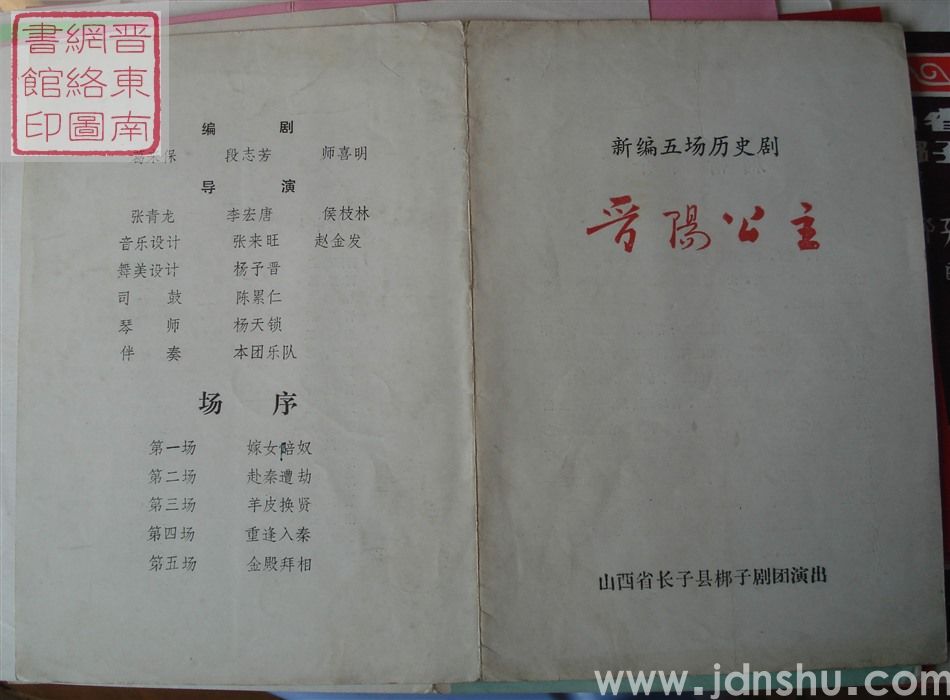 晋東南
網絡圖
書館印
编 剧
段志芳 师喜明
导 演
张青龙 李宏唐 侯枝林
音乐设计 张来旺 赵金发
舞美设计 杨予晋
司 鼓 陈累仁
琴 师 杨天锁
伴 奏 本团乐队
场 序
第一场 嫁女陪奴
第二场 赴秦遭劫
第三场 羊皮换贤
第四场 重逢入秦
第五场 金殿拜相
新编五场历史剧
晋陽公主
山西省长子县梆子剧团演出
www.jdnshu.com